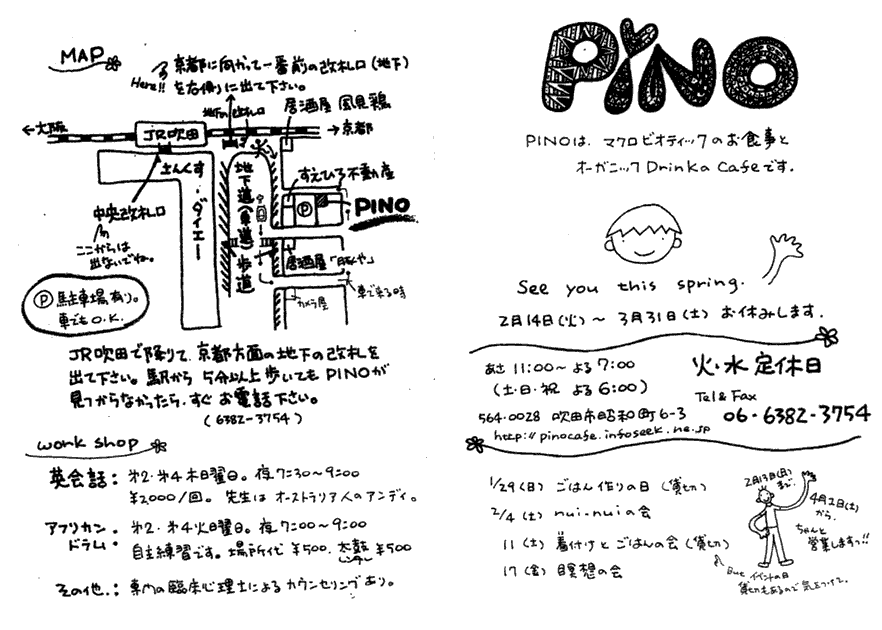 MAP
Here!!
京都に向かって一番前の改札口(地下)
を右側りに出て下さい。
地下の改札口
居酒屋 風見鶏
←大阪
JR吹田
→京都
さんくす・ダイエー
地下道(車道)
歩道
すえひろ不動産
P
PINO
中央改札口
ここからは
出ないでね。
居酒屋
カメラ屋
車で来る時
P 駐車場あり。
車でもO.K.
JR吹田で降りて、京都方面の地下の改札を
出て下さい。駅から5分以上歩いてもPINOが
見つからなかったら、すぐお電話下さい。
(6382-3754)
work shop
英会話: 第2・第4木曜日。夜7:30~9:00
¥2,000/1回。先生はオーストラリア人のアンディ。
アフリカン・ドラム: 第2・第4火曜日。夜7:00~9:00
自主練習です。場所代 ¥500. 太鼓レンタル ¥500
その他.: 専門の臨床心理士によるカウンセリングあり。
PiNO
PINOは、マクロビオティックのお食事と
オーガニック Drinkの Cafeです.
See you this spring.
2月14日(火)~3月31日(土) お休みします.
あさ 11:00~よる 7:00
(土・日・祝 よる 6:00)
火・水 定休日
Tel & Fax
06・6382-3754
564-0028 吹田市昭和町6-3
http://pinocafe.infoseek.ne.jp
1/29(日) ごはん作りの日(貸切)
2/4(土) nui-nuiの会
11(土) 着付けとごはんの会(貸切)
17(金) 瞑想の会
2月13日(月)
まで.
4月1日(土)
から.
ちゃんと
営業しますっ!!
But イベントの日
貸切もあるので気をつけて.